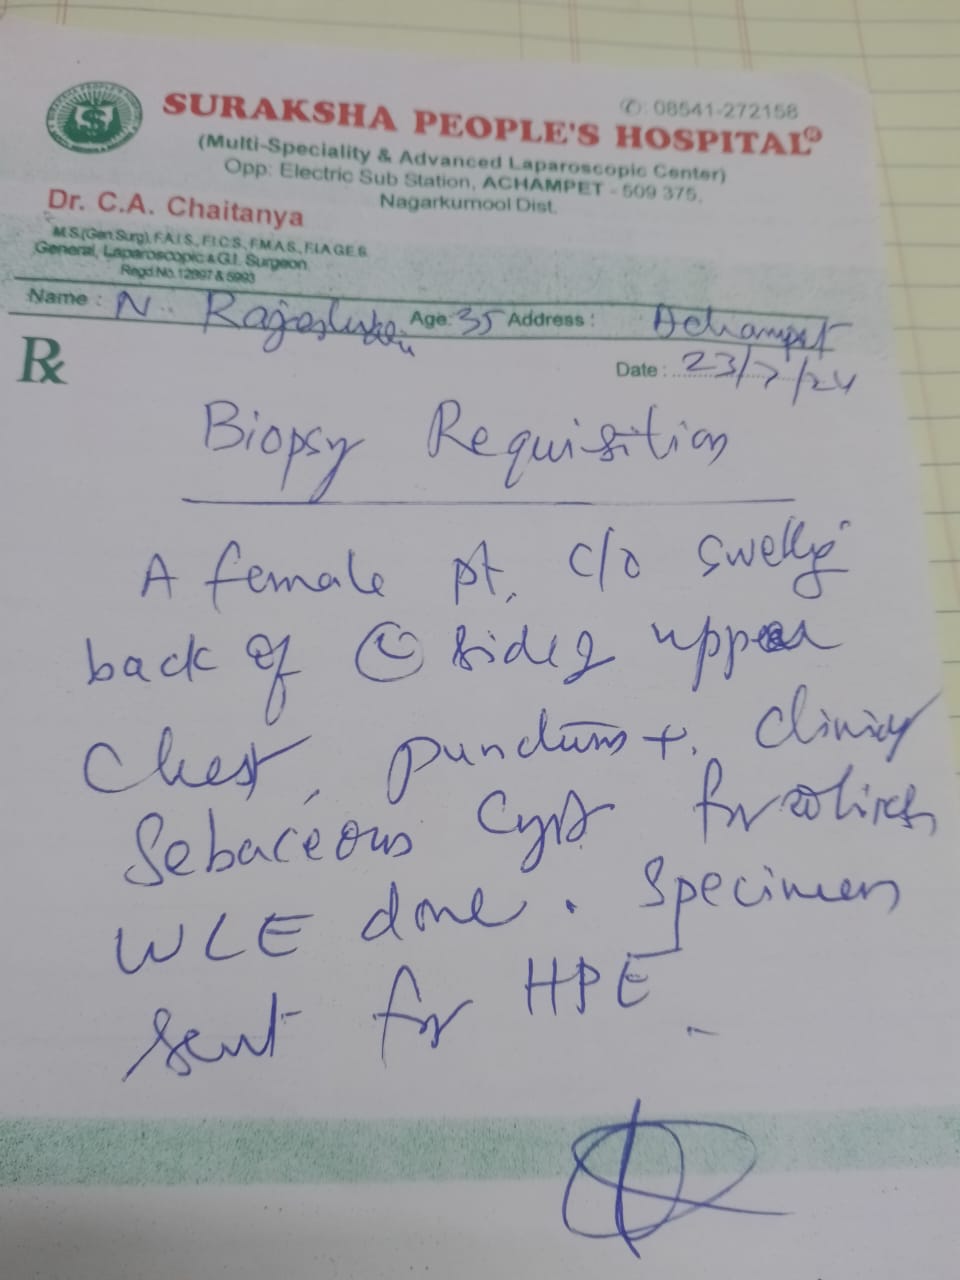 ✆: 08541-272158
SURAKSHA PEOPLE'S HOSPITAL®
(Multi-Speciality & Advanced Laparoscopic Center)
Opp: Electric Sub Station, ACHAMPET - 509 375,
Nagarkurnool Dist.
Dr. C.A. Chaitanya
M.S.(Gen Surg), F.A.I.S., F.I.C.S., F.M.A.S., F.I.A.G.E.S.
General, Laparoscopic & G.I. Surgeon
Regd.No. 12897 & 5993
Name : N. Age: 35 Address : Achampet
Rx
Date : 23/7/24
Biopsy Requisition
A female pt. c/o swelling
back of side of upper
Chest, punctum +. Clinically
Sebaceous Cyst
WLE done. Specimen
sent for HPE